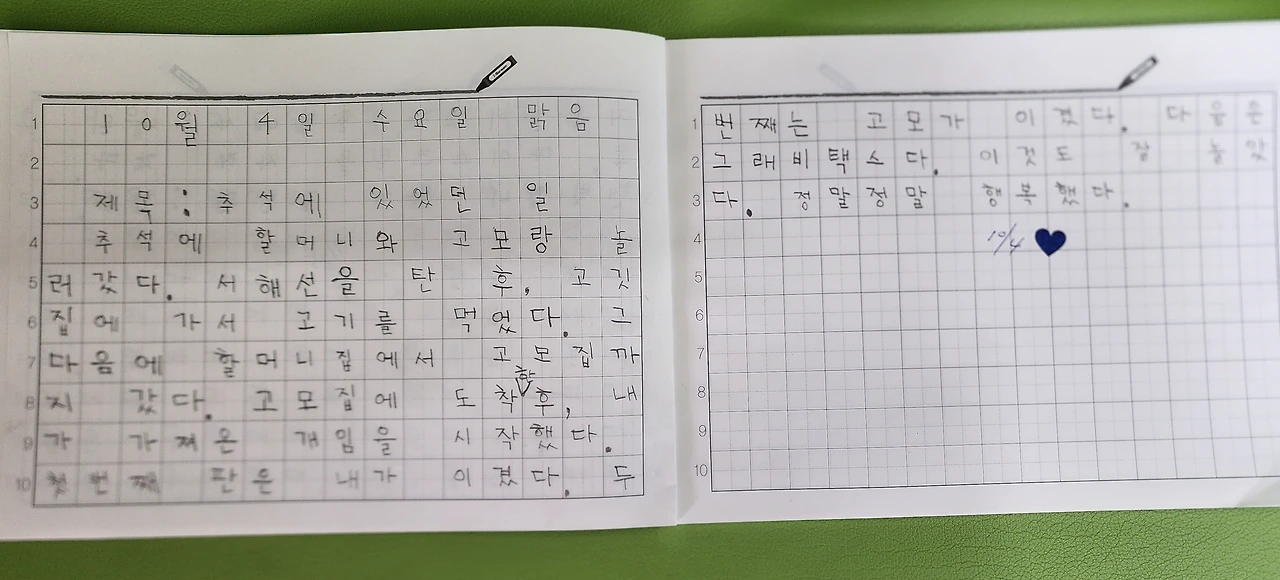 10월 4일 수요일 맑음
제목: 추석에 있었던 일
추석에 할머니와 고모랑 놀
러 갔다. 서해선을 탄 후, 고깃
집에 가서 고기를 먹었다. 그
다음에 할머니집에서 고모집까
지 갔다. 고모집에 도착한후, 내
가 가져온 개임을 시작했다.
첫번째 판은 내가 이겼다. 두
번째는 고모가 이겼다. 다음은
그래비택스다. 이것도 잘 놀았
다. 정말정말 행복했다.
10/4
1
2
3
4
5
6
7
8
9
10
1
2
3
4
5
6
7
8
9
10